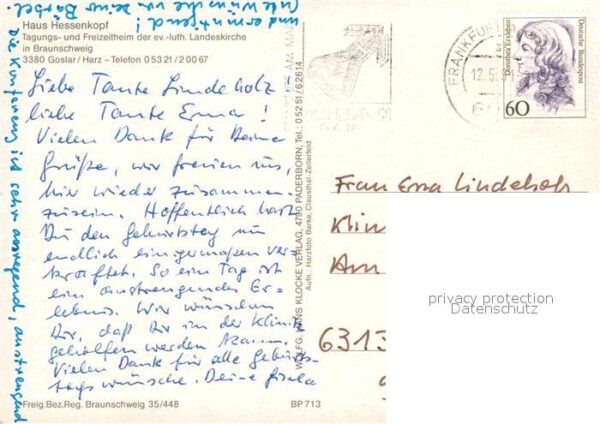 Haus Hessenkopf
Tagungs- und Freizeitheim der ev.-luth. Landeskirche
in Braunschweig
3380 Goslar/Harz - Telefon 0 53 21 / 2 00 67
Liebe Tante Lindeholz -
liebe Tante Erna!
Vielen Dank für Deine
Grüße, wir freuen uns,
hier wieder zusammen-
zusein. Hoffentlich hast
Du den Geburtstag nun
endlich einigermaßen ver-
kraftet. So ein Tag ist
ein anstrengendes Er-
lebnis. Wir wünschen
Dir, daß Dir in der Klinik
geholfen werden kann.
Vielen Dank für alle Geburts-
tagswünsche. Deine Gisela
Die Konferenz ist sehr anregend, anstrengend
und ermutigend!
Gute Wünsche von Deiner Bärbel.
Freig.Bez.Reg. Braunschweig 35/448
BP 713
WOLFG. HANS KLOCKE VERLAG, 4790 PADERBORN, Tel.: 0 52 51 / 6 26 14
Aufn.: Harzfoto Barke, Clausthal-Zellerfeld
FRANKFURT
12.5.
Dorothea Erxleben
Deutsche Bundespost
60
Frau Erna Lindeholz
Klin
Am
6313
privacy protection
Datenschutz